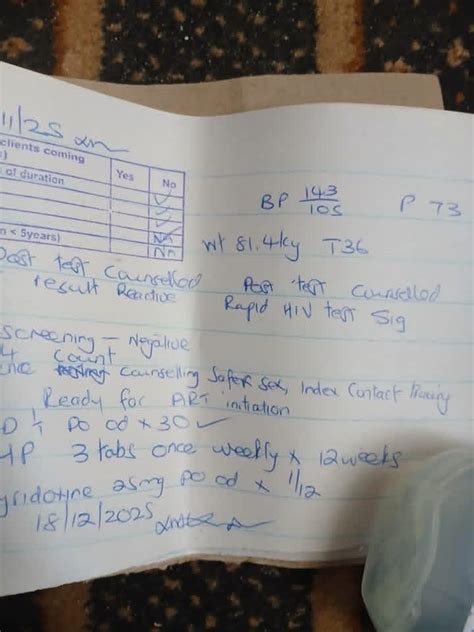 11/25
clients coming
Yes No
of duration
n < 5years)
BP 143/105 P 73
Wt 81.4kg T36
Post test Counselled
result Reactive
Post test Counselled
Rapid HIV test Sig
screening – Negative
4 Count
Counselling Safer sex, Index Contact Tracing
Ready for ART initiation
D 1 po od x 30 ✓
HP 3 tabs once weekly x 12 weeks
yridoxine 25mg po od x 1/12
18/12/2025